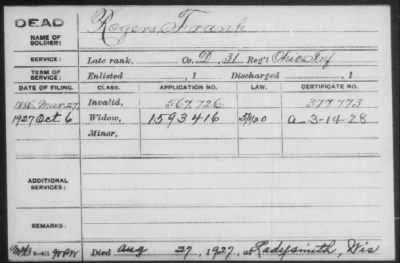 DEAD
Rogers, Frank
NAME OF
SOLDIER:
SERVICE: Late rank, Co. D, 31 Reg't Ohio Inf
TERM OF
SERVICE: Enlisted , 1 Discharged , 1
DATE OF FILING. CLASS. APPLICATION NO. LAW. CERTIFICATE NO.
1886 Mar. 27 Invalid, 567.726 377.773
1927 Oct 6 Widow, 1593416 5/1/20 a-3-14-28
Minor,
ADDITIONAL
SERVICES:
REMARKS:
Died Aug 27, 1927, at Ladysmith, Wis